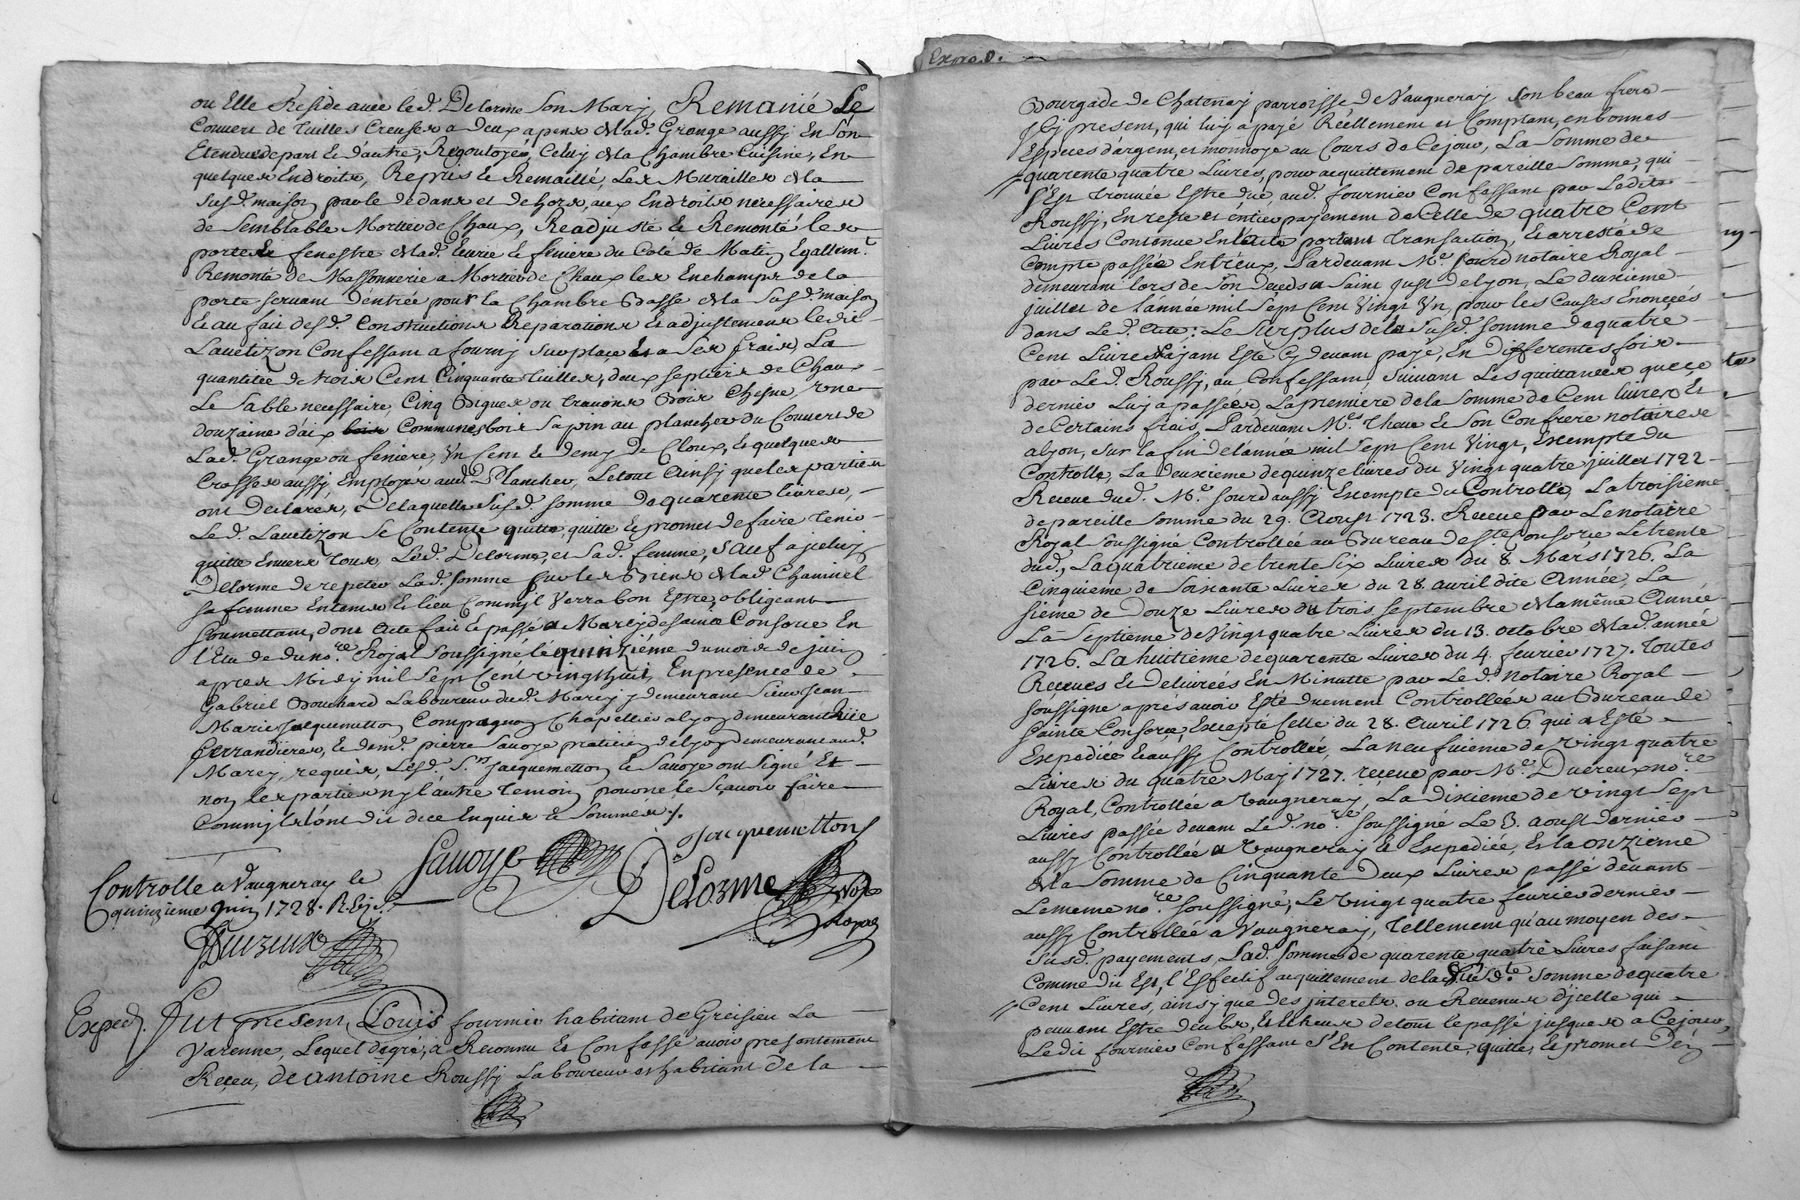 ou Elle Reside avec led. Delorme son Mary, Remanié Le
Couvert de tuilles Creuses a deux apens de lad. Grange aussy En son
Etendue de part et d'autre, Regoutoyé, Celuy de la Chambre Cuisine, En
quelques Endroits, Repris et Remaillé, Les Murailles de la
Susd. maison par le dedans et dehors, aux Endroits necessaires
de Semblable Mortier de Chaux, Readjusté et Remonté les
portes et fenestre de lad. Ecurie et feniere du Coté de Matin Egallem.t
Remonté de Massonnerie a Mortier de Chaux les Enchamps de la
porte servant d'entrée pour la Chambre Basse de la Susd. maison
Et au fait desd. Constructions Reparations et adjustemens ledit
Lauetizon Confessant a fourny sur place et a ses frais, La
quantitée de trois Cent Cinquante tuilles, deux septiers de Chaux
Le Sable necessaire, Cinq Bigues ou travons Bois Chesne, une
douzaine d'aix communes bois sapin au plancher du Couvert de
Lad. Grange ou feniere, Un Cent et demy de Cloux, et quelques
Crosses aussy Employés aud. Plancher, Le tout Ainsy que les parties
ont declaré, De laquelle susd. somme de quarente livres,
Led. Lauetizon Se Contente quitte, quitte et promet de faire tenir
quitte Envers tous, Led. Delorme, et sad. femme, sauf a iceluy
Delorme de repeter Lad. somme sur les Biens de lad. Chaminel
sa femme En tems et lieu Comm'il Verra bon Estre, obligeant
soumettant, dont acte fait et passé a Marcy de sainte Consorce En
l'Etude du no.re Royal soussigné le quinziéme du mois de juin
apres Midy mil sept cent vingt huit, En presence de
Gabriel Bouchard Laboureur dud. Marcy y demeurant Sieur Jean
Marie Jacquemetton Compagnon Chapellier a Lyon demeurant Ruë
ferrandiere, et dem.d pierre Sauoye praticien de Lyon demeurant aud.
Marcy, requis, Lesd. S.rs Jacquemetton et Sauoye ont signé Et
non les parties ny l'autre temoin pour ne le sçavoir faire
Comm'ils l'ont dit de ce Enquis et Sommés ./.
Jacquemetton
Sauoye
DeLorme
Controllé a Vaugneray le
quinzieme juin 1728. R. six s.
Expedj. Fut present, Louis fournier habitant de Greisieu La
Varenne, Lequel de gré, a Reconnu Et Confessé avoir presentement
Reçeu, de antoine Roussy Laboureur et habitant de la
Exped.
Bourgade de Chatenay parroisse de Vaugneray son beau frere
Icy present, qui luy a payé Réellement et Comptant, en bonnes
Especes d'argent, et monnoye au Cours de Ce jour, La Somme de
quarente quatre Livres, pour acquittement de pareille Somme, qui
s'Est trouvée Estre düe aud. fournier Confessant par Ledit
Roussy, En reste et entier payement de Celle de quatre Cent
Livres Contenue En l'acte portant transaction, et arresté de
Compte passée Entr'eux, Pardevant M.e Jourd notaire Royal
demeurant lors de son deceds a saint just de Lyon, Le deuxiéme
juillet de l'année mil sept cent vingt un, pour les Causes Enoncés
dans Le d. acte: Le Surplus de la susd. somme de quatre
Cent Livres ayant Esté Cy devant payé, En differentes fois
par Le d. Roussy, au Confessant, Suivant Les quittances que ce
dernier Luy a passées, La premiere de la somme de Cent livres Et
de Certains frais, Pardevant M.es Theve et son Confrere notaires
a Lyon, sur la fin de l'année mil sept Cent Vingt, Exempte du
Controlle, La deuxieme de quinze livres du Vingt quatre juillet 1722
Receue dud. M.e Jourd aussy Exempte du Controlle, La troisieme
de pareille somme du 29. Aoust 1723. Receue par Le notaire
Royal soussigné Controllée au Bureau de S.te Consorce Le trente
dud., La quatrieme de trente six Livres du 8 Mars 1726, La
Cinquieme de soixante Livres du 28 avril dite Année, La
sixieme de Douze Livres du trois septembre de la même Année
La septieme de Vingt quatre Livres du 13. octobre de lad. année
1726. La huitieme de quarente Livres du 4 fevrier 1727. Toutes
Recues et Delivreés En Minutte par Le d. Notaire Royal
soussigné apres avoir Esté duement Controllées au Bureau de
sainte Consorce, Excepté Celle du 28. Avril 1726 qui a Esté
Expediée et aussy Controllée, La neufvieme de vingt quatre
Livres du quatre May 1727. reçeue par M.e Duereux no.re
Royal, Controllée a Vaugneray, La dixieme de vingt sept
Livres passée devant Led. no.re soussigné Le 3. aoust dernier
aussy Controllée a Vaugneray et Expediée, Et la onzieme
de la somme de Cinquante Deux Livres passé devant
Le meme no.re soussigné, Le vingt quatre fevrier dernier
aussy Controllée a Vaugneray, Tellement qu'au moyen des
susd. payements, Lad. somme de quarente quatre Livres faisant
Comme dit Est, l'Effectif acquittement de la susd.te somme de quatre
Cent Livres, ainsy que des interets ou Revenus d'icelle qui
peuvent Estre deubs, Et Echeus de tout le passé jusques a Ce jour,
Le dit fournier Confessant s'En Contente, quitte, et promet Den